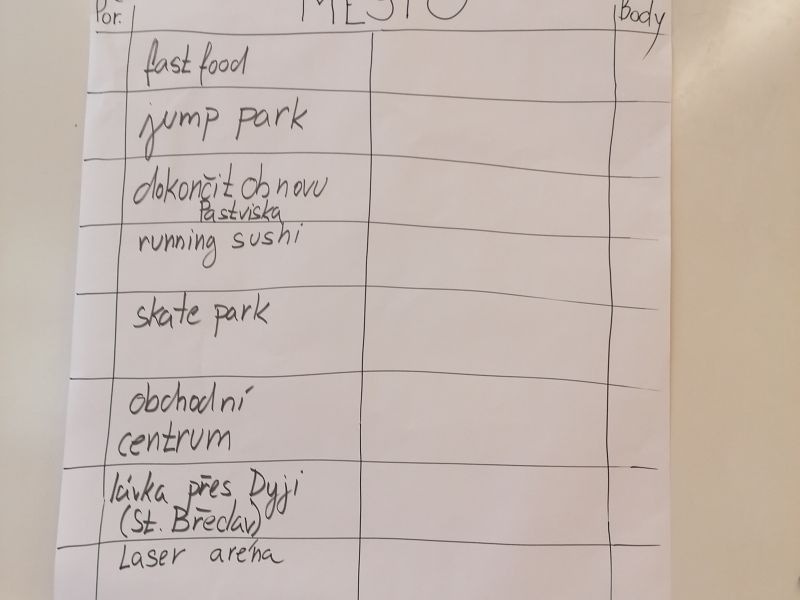 Poř. MĚSTO Body
fast food
jump park
dokončit obnovu
Pastviska
running sushi
skate park
obchodní
centrum
lávka přes Dyji
(St. Břeclav)
Laser aréna